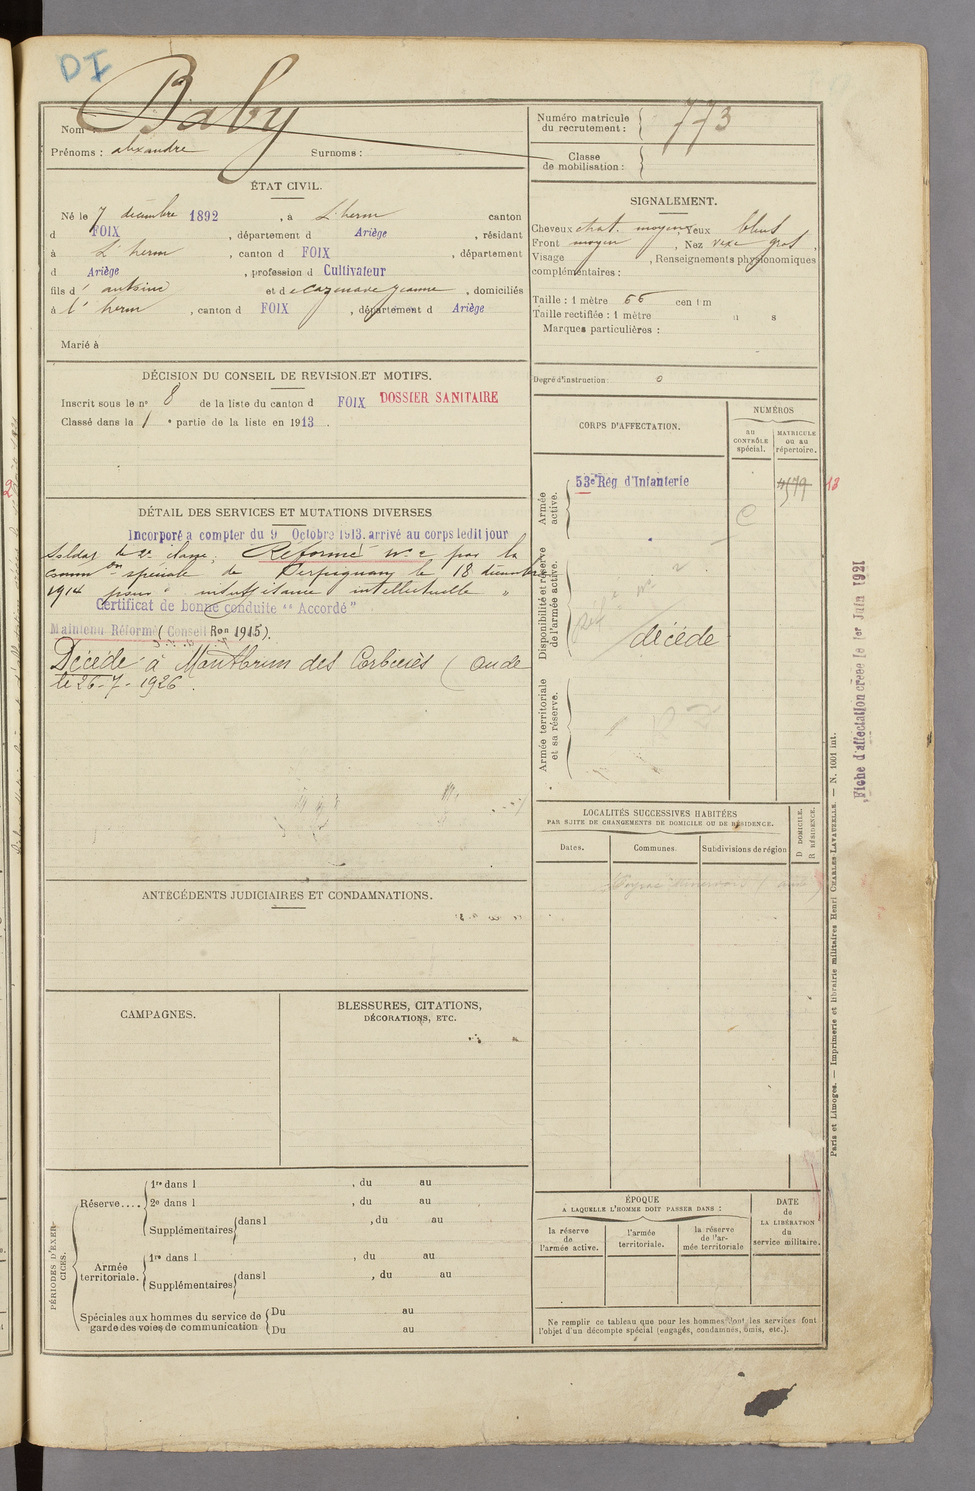 DI
Nom : Baby
Prénoms : alexandre Surnoms :
Numéro matricule du recrutement : 773
Classe de mobilisation :
ÉTAT CIVIL.
Né le 7 décembre 1892, à L'herm canton
d FOIX, département d Ariège, résidant
à L'herm, canton d FOIX, département
d Ariège, profession d Cultivateur
fils d' antoine et de Cazenave jeanne, domiciliés
à l'herm, canton d FOIX, département d Ariège
Marié à
SIGNALEMENT.
Cheveux chat. moyens, Yeux bleus
Front moyen, Nez vexe gros,
Visage , Renseignements physionomiques
complémentaires :
Taille : 1 mètre 66 centim
Taille rectifiée : 1 mètre
Marques particulières :
Degré d'instruction : 0
DÉCISION DU CONSEIL DE REVISION ET MOTIFS.
Inscrit sous le n° 8 de la liste du canton d FOIX DOSSIER SANITAIRE
Classé dans la 1e partie de la liste en 1913.
CORPS D'AFFECTATION.
NUMÉROS
au CONTRÔLE spécial.
MATRICULE ou au répertoire.
Armée active.
53e Rég d'Infanterie
4579
13
C
Disponibilité et réserve de l'armée active.
Réf é n° 2
décédé
Armée territoriale et sa réserve.
DÉTAIL DES SERVICES ET MUTATIONS DIVERSES
Incorporé a compter du 9 Octobre 1913. arrivé au corps ledit jour
Soldat de 2e classe. Réformé n° 2 par la
comm on spéciale de Perpignan le 18 décembre
1914 pour "insuffisance intellectuelle"
Certificat de bonne conduite "Accordé"
Maintenu Réformé (Conseil Ron 1915).
Décédé à Montbrun des Corbières (Aude
le 26-7-1926.
Fiche d'affectation créée le 1er Juin 1921
LOCALITÉS SUCCESSIVES HABITÉES
PAR SUITE DE CHANGEMENTS DE DOMICILE OU DE RÉSIDENCE.
D DOMICILE.
R RÉSIDENCE.
Dates. Communes. Subdivisions de région
ANTÉCÉDENTS JUDICIAIRES ET CONDAMNATIONS.
CAMPAGNES.
BLESSURES, CITATIONS,
DÉCORATIONS, ETC.
PÉRIODES D'EXERCICES.
Réserve....
1re dans l , du au
2e dans l , du au
Supplémentaires dans l , du au
Armée territoriale.
1re dans l , du au
Supplémentaires dans l , du au
Spéciales aux hommes du service de garde des voies de communication
Du au
Du au
ÉPOQUE
A LAQUELLE L'HOMME DOIT PASSER DANS :
la réserve de l'armée active.
l'armée territoriale.
la réserve de l'armée territoriale
DATE de LA LIBÉRATION du service militaire.
Ne remplir ce tableau que pour les hommes dont les services font
l'objet d'un décompte spécial (engagés, condamnés, omis, etc.).
Paris et Limoges. — Imprimerie et librairie militaires Henri CHARLES LAVAUZELLE. — N. 1001 int.